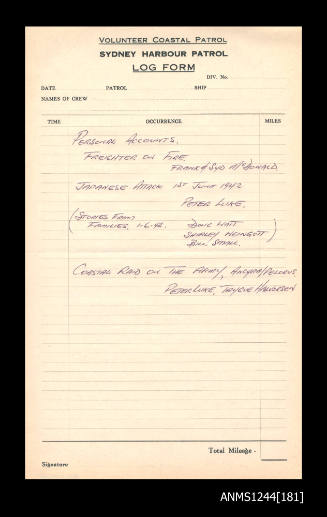 VOLUNTEER COASTAL PATROL
SYDNEY HARBOUR PATROL
LOG FORM
DIV. No.
DATE PATROL SHIP
NAMES OF CREW
TIME OCCURRENCE MILES
PERSONAL ACCOUNTS.
FREIGHTER ON FIRE.
FRANK & SYD McDONALD
JAPANESE ATTACK 1ST JUNE 1942
PETER LUKE.
(STORIES FROM
FAMILIES, 1-6-42. DOUG WATT
SHIRLEY WEINGOTT
BILL SMALL.)
COASTAL RAID ON THE ARMY, /PELORUS
PETER LUKE, TRYGVE HALVORSEN
Total Mileage -
Signature
ANMS1244[181]